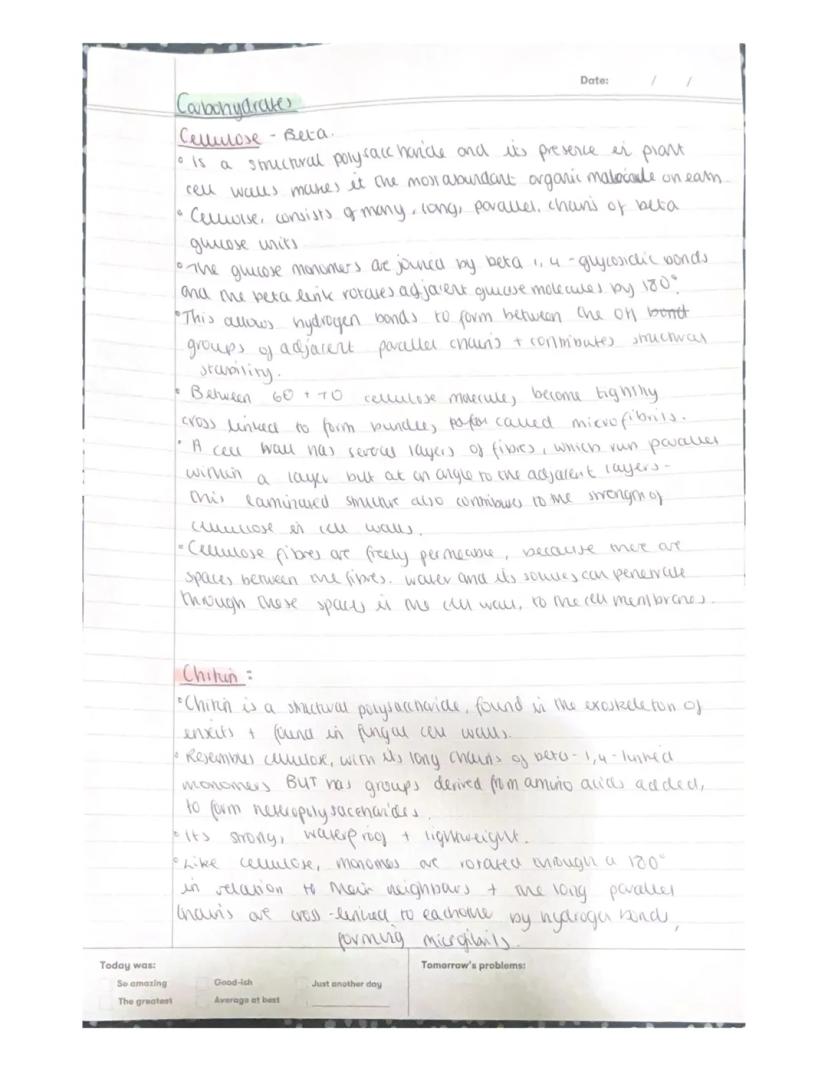 Date: / /
Carbohydrates
Cellulose - Beta.
• Is a structural polysaccharide and its presence in plant
cell walls makes it the most abundant organic molecule on earth.
• Cellulose, consists of many, long, parallel, chains of beta
glucose units
• The glucose monomers are joined by beta 1,4-glycosidic bonds
and the beta link rotates adjacent glucose molecules by 180°.
• This allows hydrogen bonds to form between the OH bond
groups of adjacent parallel chains + contributes structural
stability.
• Between 60 + 70 cellulose molecules become tightly
cross linked to form bundles called microfibrils.
• A cell wall has several layers of fibres, which run parallel
within a layer but at an angle to the adjacent layers-
this laminated structure also contributes to the strength of
cellulose in cell walls.
• Cellulose fibres are freely permeable, because there are
spaces between the fibres. water and its solutes can penetrate
through these spaces in the cell wall, to the cell membranes.
Chitin:
• Chitin is a structural polysaccharide, found in the exoskeleton of
insects + found in fungal cell walls.
• Resembles cellulose, with its long chains of beta-1,4-linked
monomers BUT has groups derived from amino acids added,
to form heteropolysaccharides.
• Its strong, waterproof + lightweight.
• Like cellulose, monomers are rotated through a 180°
in relation to their neighbours + the long parallel
chains are cross-linked to eachother by hydrogen bonds,
forming microfibrils.
Today was:
So amazing
Good-ish
Just another day
The greatest
Average at best
Tomorrow's problems: